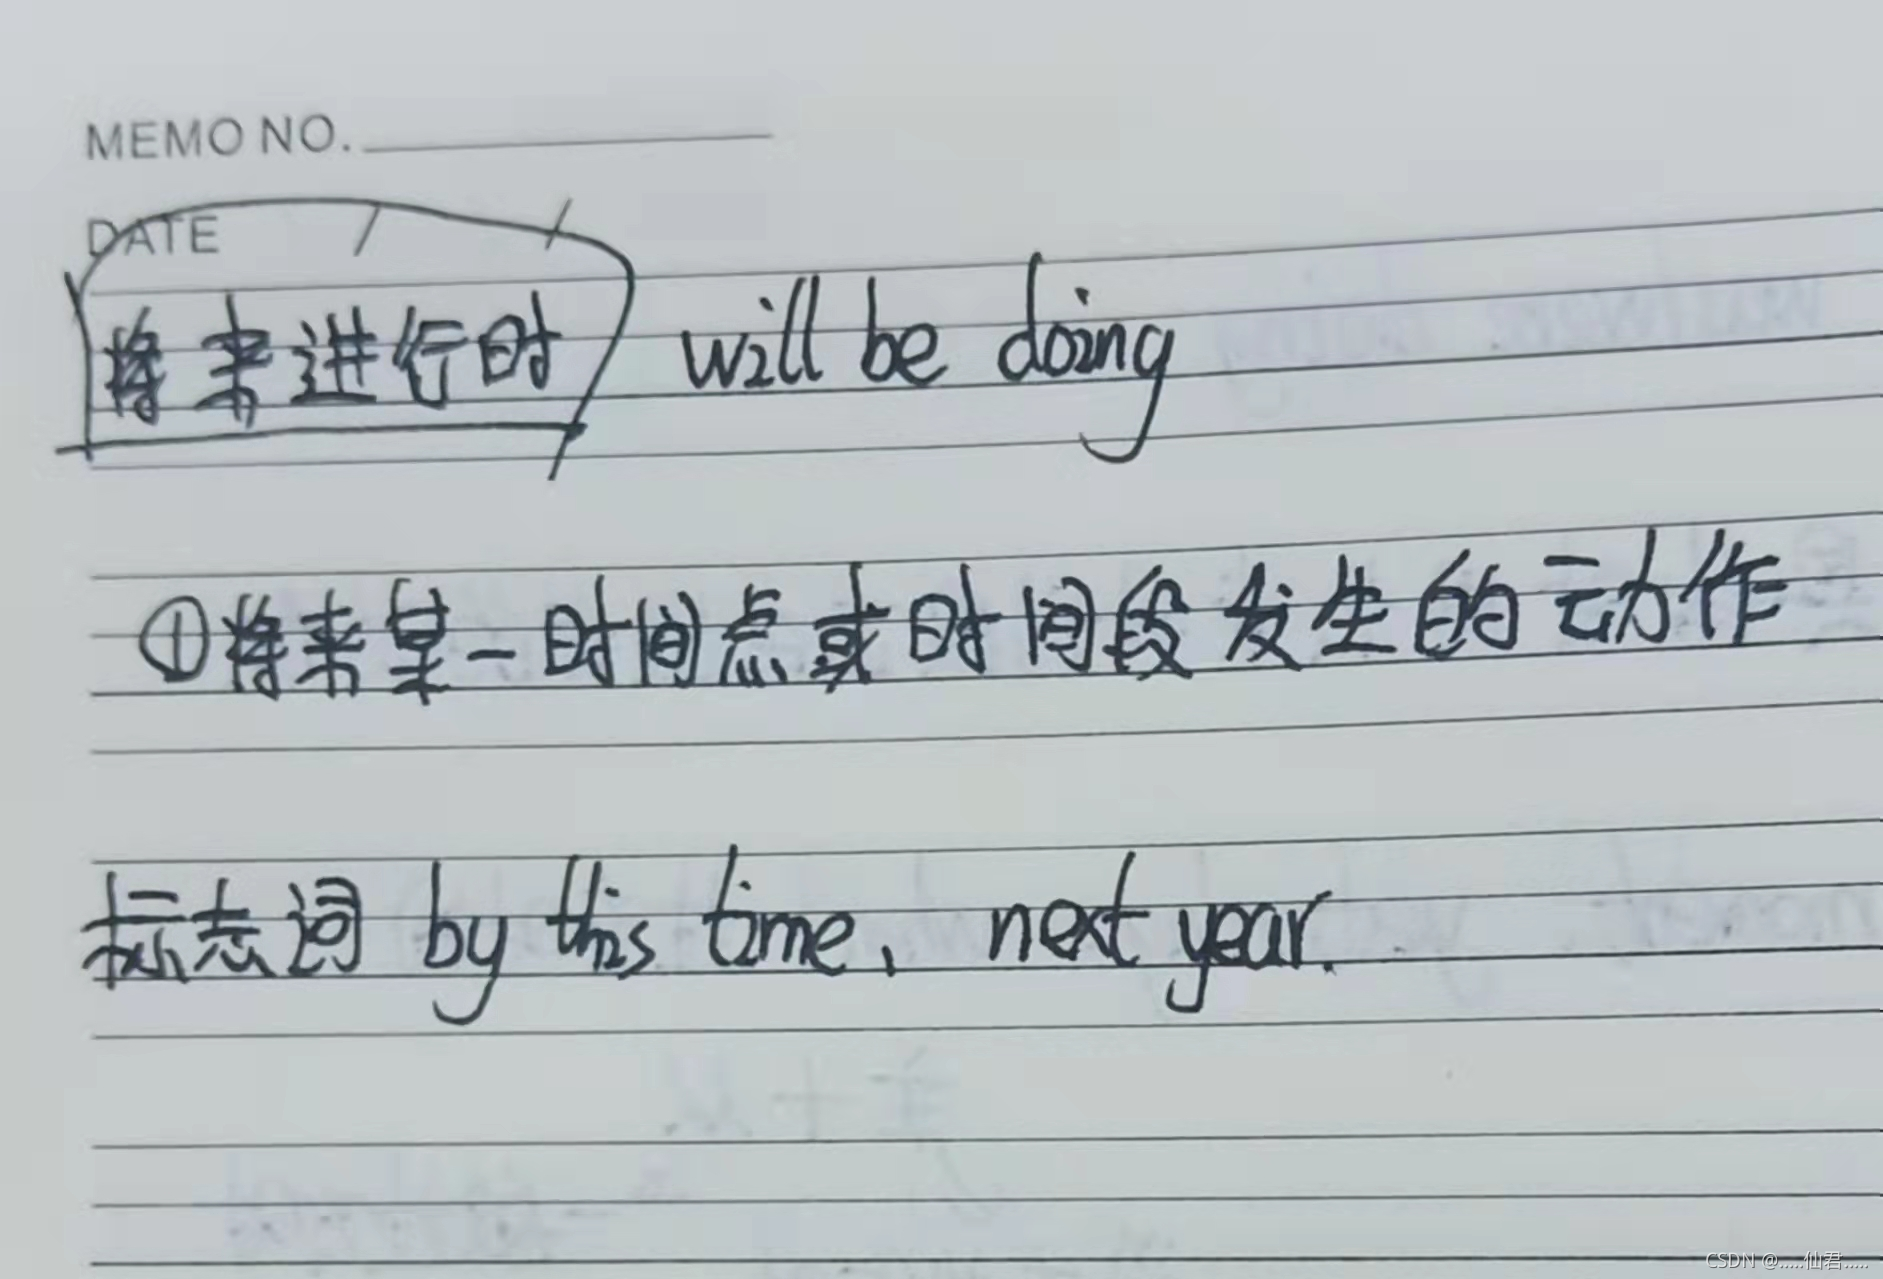 MEMO NO.
DATE / /
将来进行时 will be doing
①将来某一时间点或时间段发生的动作
标志词 by this time, next year.
CSDN @.....仙君.....